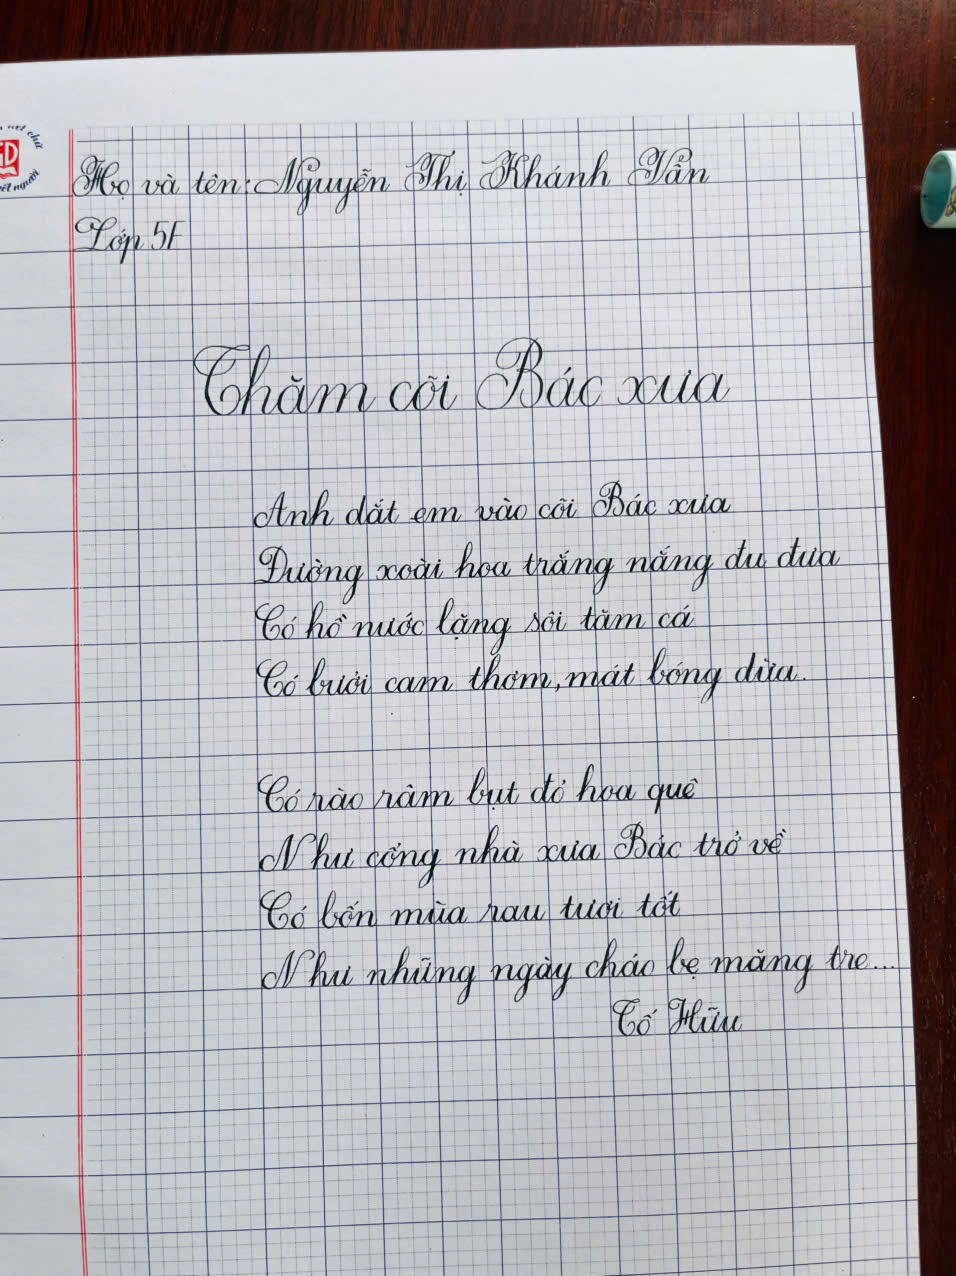 nét chữ
GD
nết người
Họ và tên: Nguyễn Thị Khánh Vân
Lớp 5F
Thăm cõi Bác xưa
Anh dắt em vào cõi Bác xưa
Đường xoài hoa trắng nắng đu đưa
Có hồ nước lặng sôi tăm cá
Có bưởi cam thơm, mát bóng dừa.
Có rào râm bụt đỏ hoa quê
Như cổng nhà xưa Bác trở về
Có bốn mùa rau tươi tốt
Như những ngày cháo bẹ măng tre...
Tố Hữu